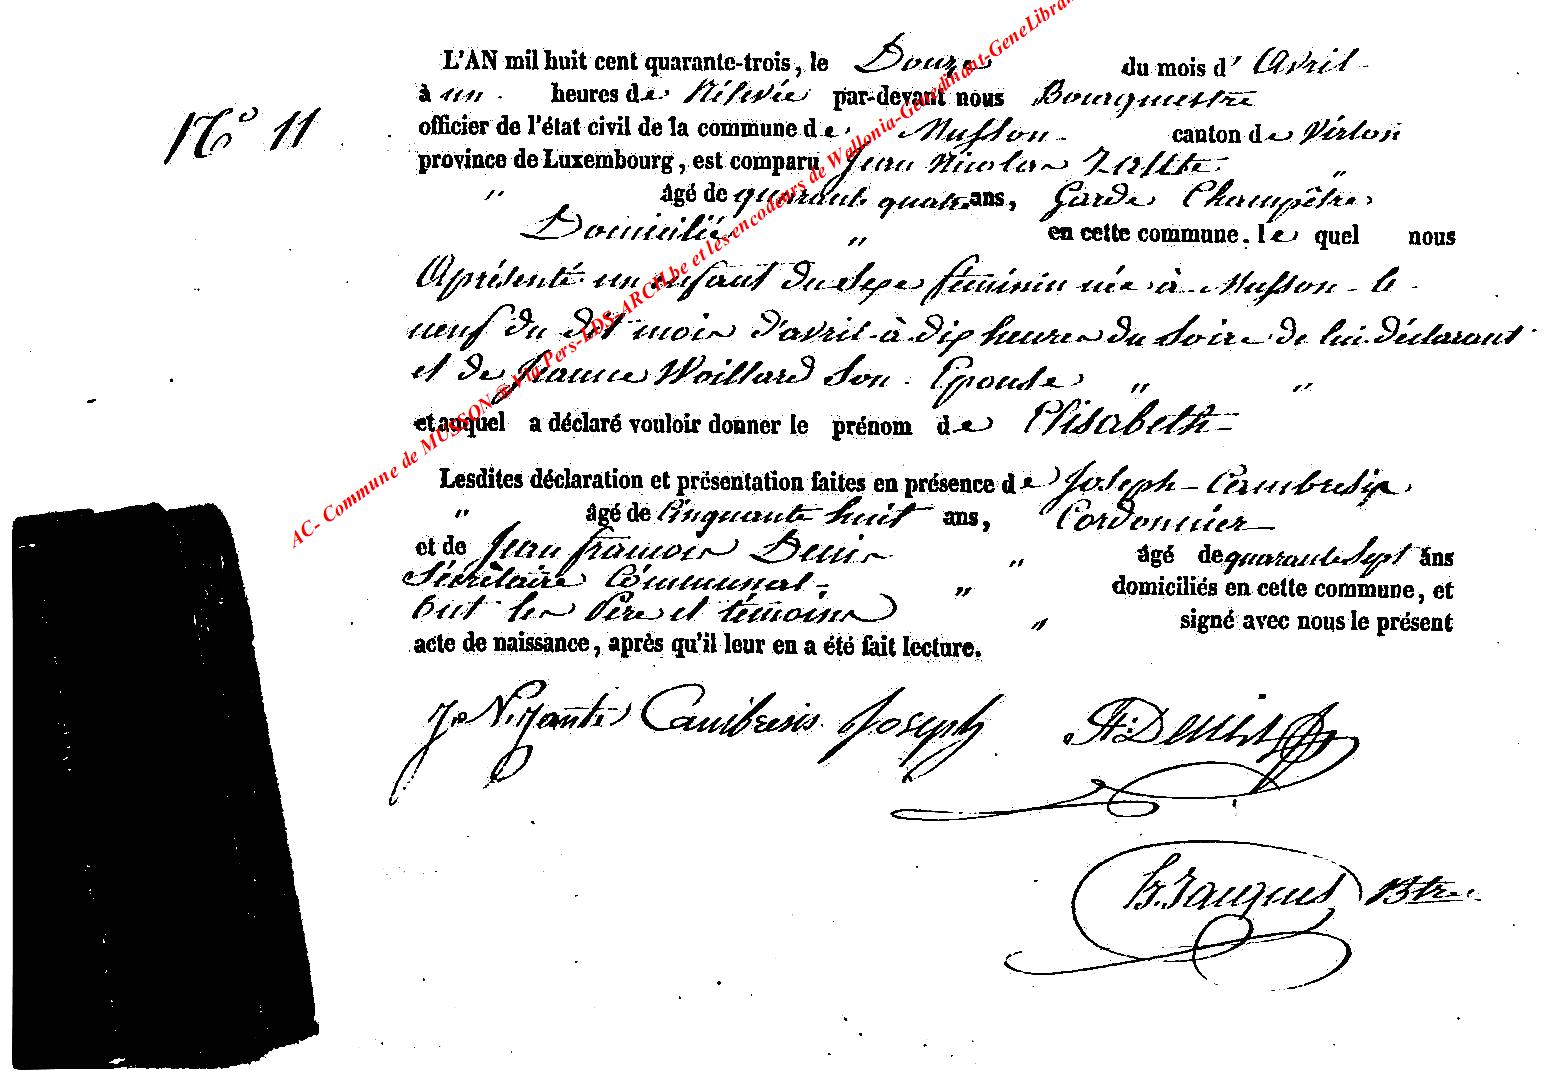 L'AN mil huit cent quarante-trois, le Douze du mois d' Avril
N° 11
à un heures de Rélevée par-devant nous Bourgmestre
officier de l'état civil de la commune de Musson canton de Virton
province de Luxembourg, est comparu Jean Nicolas
" âgé de quarante quatre ans, Garde Champêtre "
Domicilié " en cette commune, le quel nous
Aprésenté un enfant du Sexe féminin née à Musson le
neuf du dit mois d'avril à dix heures du Soire de lui déclarant
et de Woillard Son Epouse " "
et auquel a déclaré vouloir donner le prénom de Elisabeth
Lesdites déclaration et présentation faites en présence de Joseph Cambresix
" âgé de Cinquante huit ans, Cordonnier
et de Jean françois Denis " âgé de quarante Sept ans
Sécrétaire Communal " domiciliés en cette commune, et
Ont les Père et témoins " signé avec nous le présent
acte de naissance, après qu'il leur en a été fait lecture.
Cambresis Joseph
Jacques Btre
AC- Commune de MUSSON @ Via Pers-LDS-ARCH.be et les encodeurs de Wallonia-Genedinant-GeneLibran